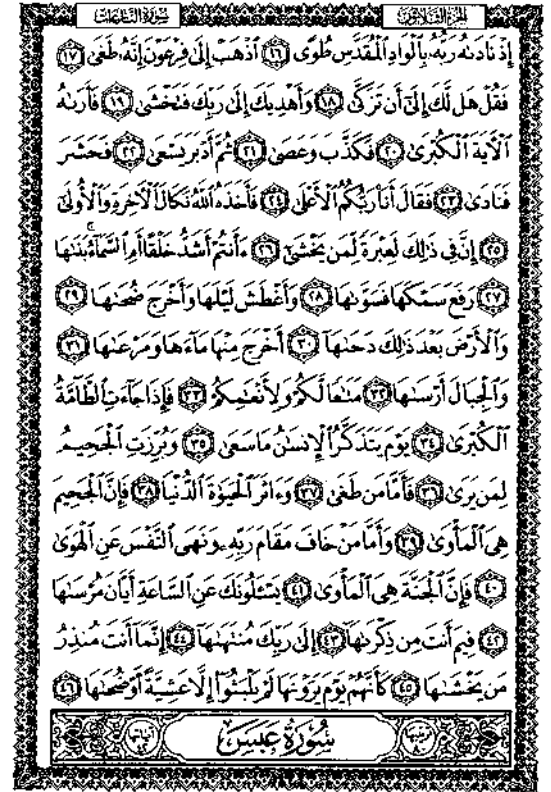 الجزء الثلاثون سورة النازعات
إِذْ نَادَىٰهُ رَبُّهُۥ بِٱلْوَادِ ٱلْمُقَدَّسِ طُوًى ١٦ ٱذْهَبْ إِلَىٰ فِرْعَوْنَ إِنَّهُۥ طَغَىٰ ١٧
فَقُلْ هَل لَّكَ إِلَىٰٓ أَن تَزَكَّىٰ ١٨ وَأَهْدِيَكَ إِلَىٰ رَبِّكَ فَتَخْشَىٰ ١٩ فَأَرَىٰهُ
ٱلْـَٔايَةَ ٱلْكُبْرَىٰ ٢٠ فَكَذَّبَ وَعَصَىٰ ٢١ ثُمَّ أَدْبَرَ يَسْعَىٰ ٢٢ فَحَشَرَ
فَنَادَىٰ ٢٣ فَقَالَ أَنَا۠ رَبُّكُمُ ٱلْأَعْلَىٰ ٢٤ فَأَخَذَهُ ٱللَّهُ نَكَالَ ٱلْـَٔاخِرَةِ وَٱلْأُولَىٰٓ
٢٥ إِنَّ فِى ذَٰلِكَ لَعِبْرَةً لِّمَن يَخْشَىٰٓ ٢٦ ءَأَنتُمْ أَشَدُّ خَلْقًا أَمِ ٱلسَّمَآءُ ۚ بَنَىٰهَا
٢٧ رَفَعَ سَمْكَهَا فَسَوَّىٰهَا ٢٨ وَأَغْطَشَ لَيْلَهَا وَأَخْرَجَ ضُحَىٰهَا ٢٩
وَٱلْأَرْضَ بَعْدَ ذَٰلِكَ دَحَىٰهَآ ٣٠ أَخْرَجَ مِنْهَا مَآءَهَا وَمَرْعَىٰهَا ٣١
وَٱلْجِبَالَ أَرْسَىٰهَا ٣٢ مَتَـٰعًا لَّكُمْ وَلِأَنْعَـٰمِكُمْ ٣٣ فَإِذَا جَآءَتِ ٱلطَّآمَّةُ
ٱلْكُبْرَىٰ ٣٤ يَوْمَ يَتَذَكَّرُ ٱلْإِنسَـٰنُ مَا سَعَىٰ ٣٥ وَبُرِّزَتِ ٱلْجَحِيمُ
لِمَن يَرَىٰ ٣٦ فَأَمَّا مَن طَغَىٰ ٣٧ وَءَاثَرَ ٱلْحَيَوٰةَ ٱلدُّنْيَا ٣٨ فَإِنَّ ٱلْجَحِيمَ
هِىَ ٱلْمَأْوَىٰ ٣٩ وَأَمَّا مَنْ خَافَ مَقَامَ رَبِّهِۦ وَنَهَى ٱلنَّفْسَ عَنِ ٱلْهَوَىٰ
٤٠ فَإِنَّ ٱلْجَنَّةَ هِىَ ٱلْمَأْوَىٰ ٤١ يَسْـَٔلُونَكَ عَنِ ٱلسَّاعَةِ أَيَّانَ مُرْسَىٰهَا
٤٢ فِيمَ أَنتَ مِن ذِكْرَىٰهَآ ٤٣ إِلَىٰ رَبِّكَ مُنتَهَىٰهَآ ٤٤ إِنَّمَآ أَنتَ مُنذِرُ
مَن يَخْشَىٰهَا ٤٥ كَأَنَّهُمْ يَوْمَ يَرَوْنَهَا لَمْ يَلْبَثُوٓا۟ إِلَّا عَشِيَّةً أَوْ ضُحَىٰهَا ٤٦
سُورَةُ عَبَسَ